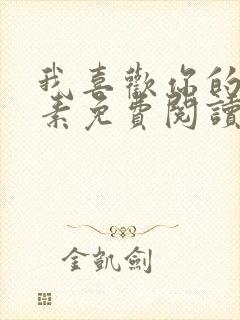 我喜歡你的
素免費閱讀
金凱劍